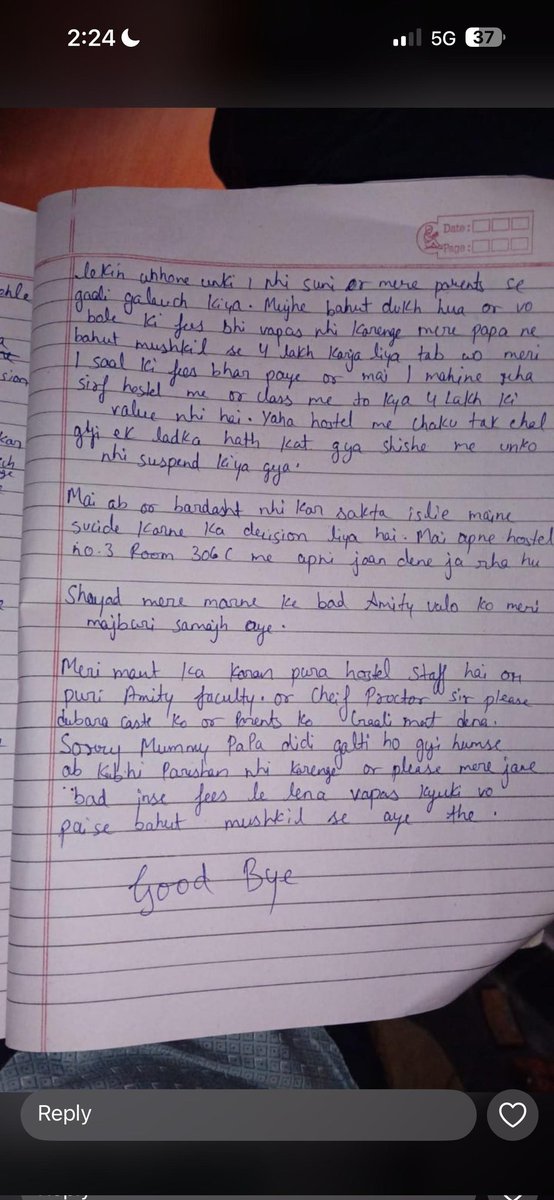 2:24
5G 37
Date:
Page:
lekin uhhone unki 1 nhi suni or mere parents se
gaali galauch kiya. Mujhe bahut dukh hua or vo
bole ki fees bhi vapas nhi karenge mere papa ne
bahut mushkil se 4 lakh karja liya tab wo meri
1 saal ki fees bhar paye or mai 1 mahine rha
sirf hostel me or class me to kya 4 lakh ki
value nhi hai. Yaha hostel me chaku tak chal
gyi ek ladka hath kat gya shishe me unko
nhi suspend kiya gya.
Mai ab or bardasht nhi kar sakta islie maine
sucide karne ka decision liya hai. Mai apne hostel
no. 3 Room 306 C me apni jaan dene ja rha hu
Shayad mere marne ke bad Amity valo ko meri
majburi samajh aye.
Meri maut ka karan pura hostel staff hai or
puri Amity faculty. or Cheif Proctor sir please
dubara caste ko or Parents ko Gaali mat dena.
Sorry Mummy PaPa didi galti ho gyi humse
ab kabhi Pareshan nhi karenge or please mere jane
bad inse fees le lena vapas kyuki vo
paise bahut mushkil se aye the.
Good Bye
Reply